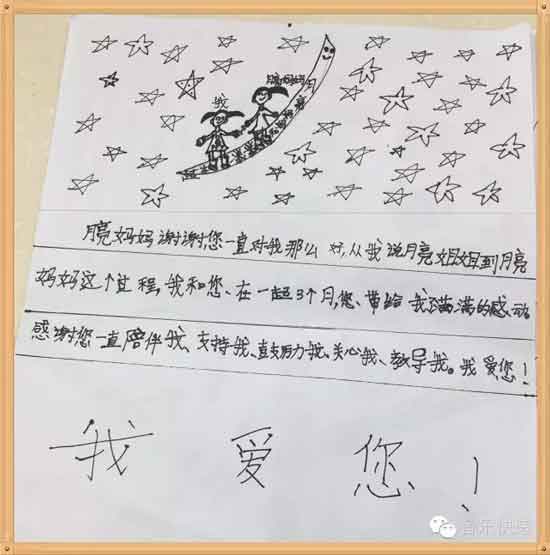 我
月亮妈妈
月亮妈妈谢谢您一直对我那么好,从我说月亮姐姐到月亮
妈妈这个过程,我和您、在一起3个月,您、带给我满满的感动
感谢您一直陪伴我、支持我、鼓励我、关心我、教导我。我爱您!
我 爱 您!
音乐快递